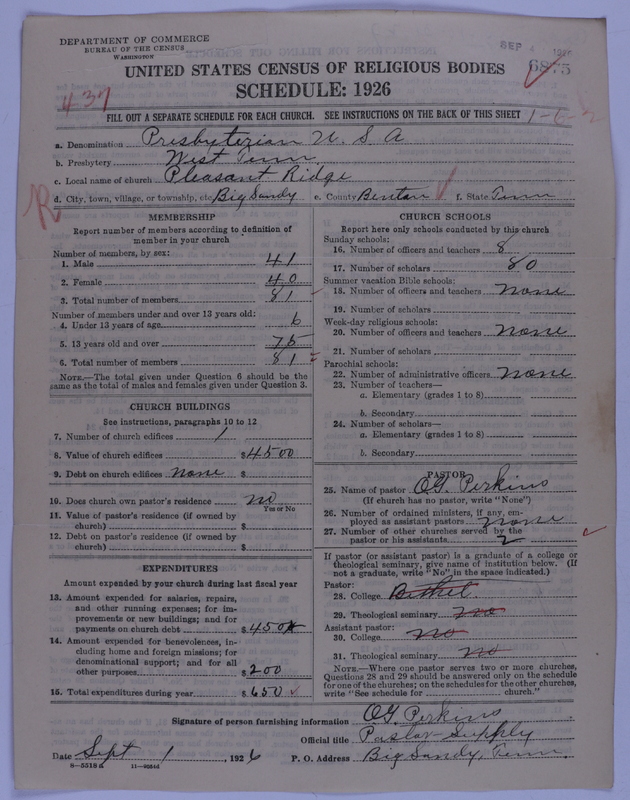 DEPARTMENT OF COMMERCE
BUREAU OF THE CENSUS
WASHINGTON
SEP 4 1926
6875
UNITED STATES CENSUS OF RELIGIOUS BODIES
SCHEDULE: 1926
437
FILL OUT A SEPARATE SCHEDULE FOR EACH CHURCH. SEE INSTRUCTIONS ON THE BACK OF THIS SHEET
a. Denomination Presbyterian U.S.A
b. Presbytery West Tenn.
c. Local name of church Pleasant Ridge
d. City, town, village, or township, etc. Big Sandy e. County Benton f. State Tenn
R
MEMBERSHIP
Report number of members according to definition of
member in your church
Number of members, by sex:
1. Male 41
2. Female 40
3. Total number of members 81
Number of members under and over 13 years old:
4. Under 13 years of age 6
5. 13 years old and over 75
6. Total number of members 81
NOTE.—The total given under Question 6 should be the
same as the total of males and females given under Question 3.
CHURCH BUILDINGS
See instructions, paragraphs 10 to 12
7. Number of church edifices 1
8. Value of church edifices $4500
9. Debt on church edifices none $
10. Does church own pastor's residence no
Yes or No
11. Value of pastor's residence (if owned by
church) $
12. Debt on pastor's residence (if owned by
church) $
EXPENDITURES
Amount expended by your church during last fiscal year
13. Amount expended for salaries, repairs,
and other running expenses; for im-
provements or new buildings; and for
payments on church debt $450
14. Amount expended for benevolences, in-
cluding home and foreign missions; for
denominational support; and for all
other purposes $200
15. Total expenditures during year $650
CHURCH SCHOOLS
Report here only schools conducted by this church
Sunday schools:
16. Number of officers and teachers 8
17. Number of scholars 80
Summer vacation Bible schools:
18. Number of officers and teachers none
19. Number of scholars
Week-day religious schools:
20. Number of officers and teachers none
21. Number of scholars
Parochial schools:
22. Number of administrative officers none
23. Number of teachers—
a. Elementary (grades 1 to 8)
b. Secondary
24. Number of scholars—
a. Elementary (grades 1 to 8)
b. Secondary
PASTOR
25. Name of pastor O.G. Perkins
(If church has no pastor, write "None")
26. Number of ordained ministers, if any, em-
ployed as assistant pastors none
27. Number of other churches served by the
pastor or his assistants 2
If pastor (or assistant pastor) is a graduate of a college or
theological seminary, give name of institution below. (If
not a graduate, write "No" in the space indicated.)
Pastor:
28. College Bethel
29. Theological seminary no
Assistant pastor:
30. College no
31. Theological seminary no
NOTE.—Where one pastor serves two or more churches,
Questions 28 and 29 should be answered only on the schedule
for one of the churches; on the schedules for the other churches,
write "See schedule for church."
Signature of person furnishing information O.G. Perkins
Official title Pastor-Supply
Date Sept 1, 1926 P. O. Address Big Sandy, Tenn.
8-5518a